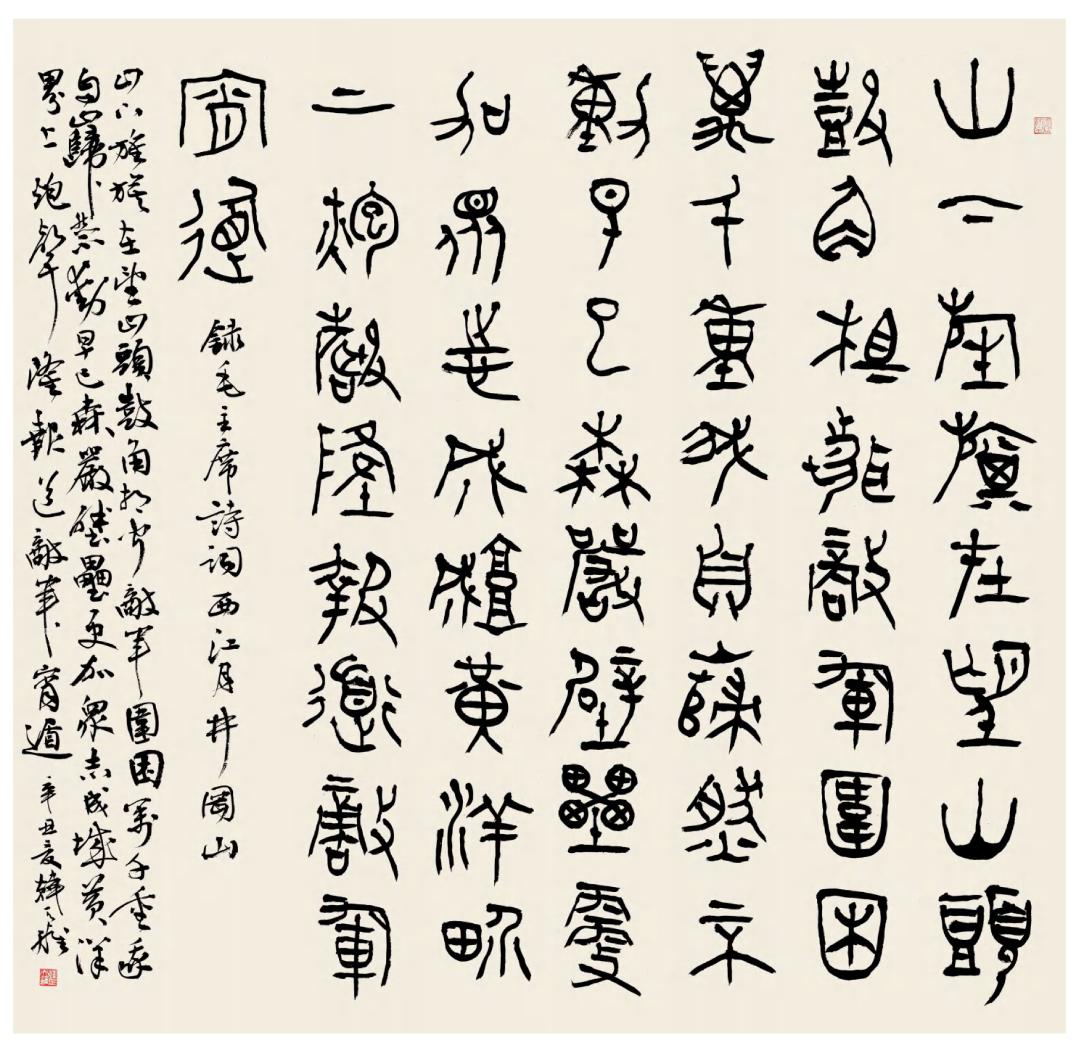 山下旌旗在望山頭
鼓角相聞敵軍圍困
萬千重我自巋然不
動早已森嚴壁壘更
加衆志成城黃洋界
上炮聲隆報道敵軍
宵遁
錄毛主席詩詞西江月井岡山
山下旌旗在望山頭鼓角相聞敵軍圍困萬千重我
自巋然不動早已森嚴壁壘更加衆志成城黃洋
界上炮聲隆報道敵軍宵遁 辛丑夏韓天雍